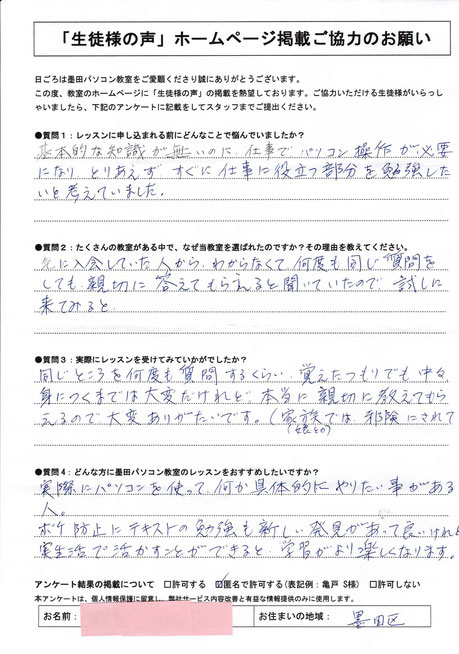 「生徒様の声」ホームページ掲載ご協力のお願い
日ごろは墨田パソコン教室をご愛顧くださり誠にありがとうございます。
この度、教室のホームページに「生徒様の声」の掲載を熱望しております。ご協力いただける生徒様がいらっし
ゃいましたら、下記のアンケートに記載をしてスタッフまでご提出ください。
●質問1:レッスンに申し込まれる前にどんなことで悩んでいましたか?
基本的な知識が無いのに、仕事でパソコン操作が必要
になり、とりあえず すぐに仕事に役立つ部分を勉強した
いと考えていました。
●質問2:たくさんの教室がある中で、なぜ当教室を選ばれたのですか?その理由を教えてください。
先に入会していた人から、わからなくて何度も同じ質問を
しても、親切に答えてもらえると聞いていたので、試しに
来てみると、
●質問3:実際にレッスンを受けてみていかがでしたか?
同じところを何度も質問するくらい、覚えたつもりでも中々
身につくまでは大変だけれど、本当に親切に教えてもら
えるので大変ありがたいです。(家族では邪険にされて
(娘との)
●質問4:どんな方に墨田パソコン教室のレッスンをおすすめしたいですか?
実際にパソコンを使って、何か具体的にやりたい事がある
人。
ボケ防止にテキストの勉強も新しい発見があって良いけれど
実生活で活かすことができると、学習がより楽しくなります。
アンケート結果の掲載について □許可する ☑匿名で許可する(表記例:亀戸 S様) □許可しない
本アンケートは、個人情報保護に留意し、弊社サービス内容改善と有益な情報提供のみに使用します。
お名前: お住まいの地域: 墨田区